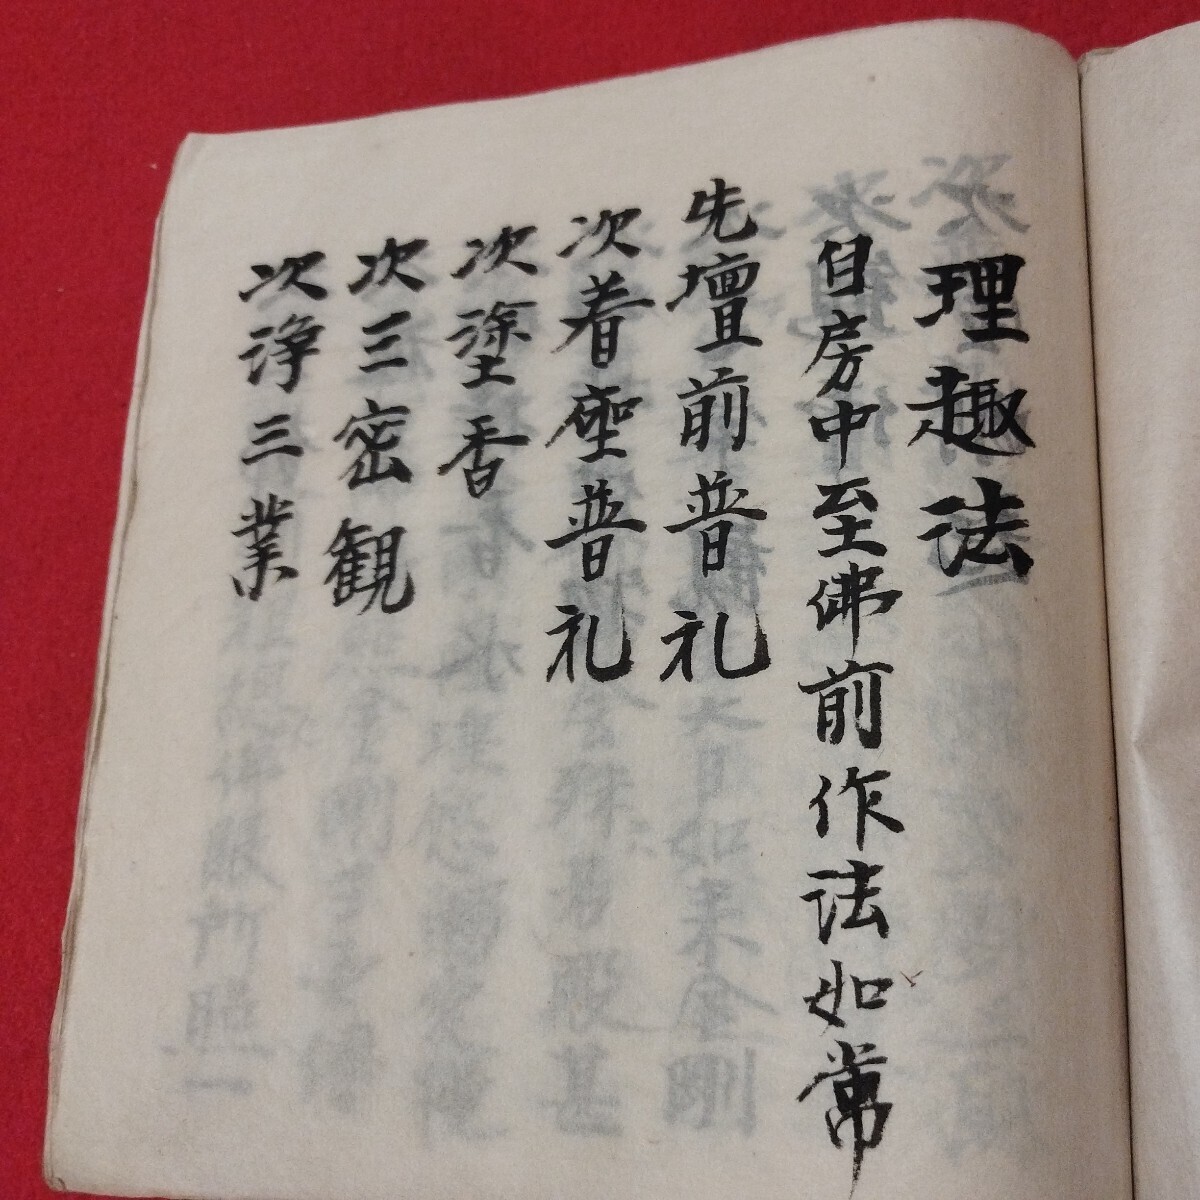 理趣法
自房中至佛前作法如常
先壇前普礼
次着座普礼
次塗香
次三密観
次浄三業